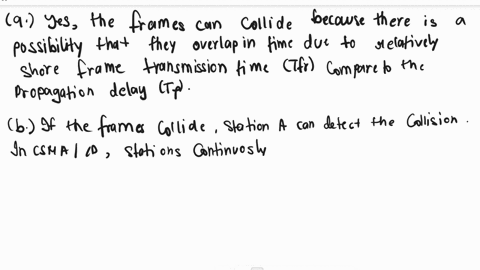 (a.) Yes, the frames can collide because there is a
possibility that they overlap in time due to relatively
shore frame transmission time (Tfr) compare to the
propagation delay (Tp).
(b.) If the frames collide, station A can detect the collision.
In CSMA/CD, stations continuosly